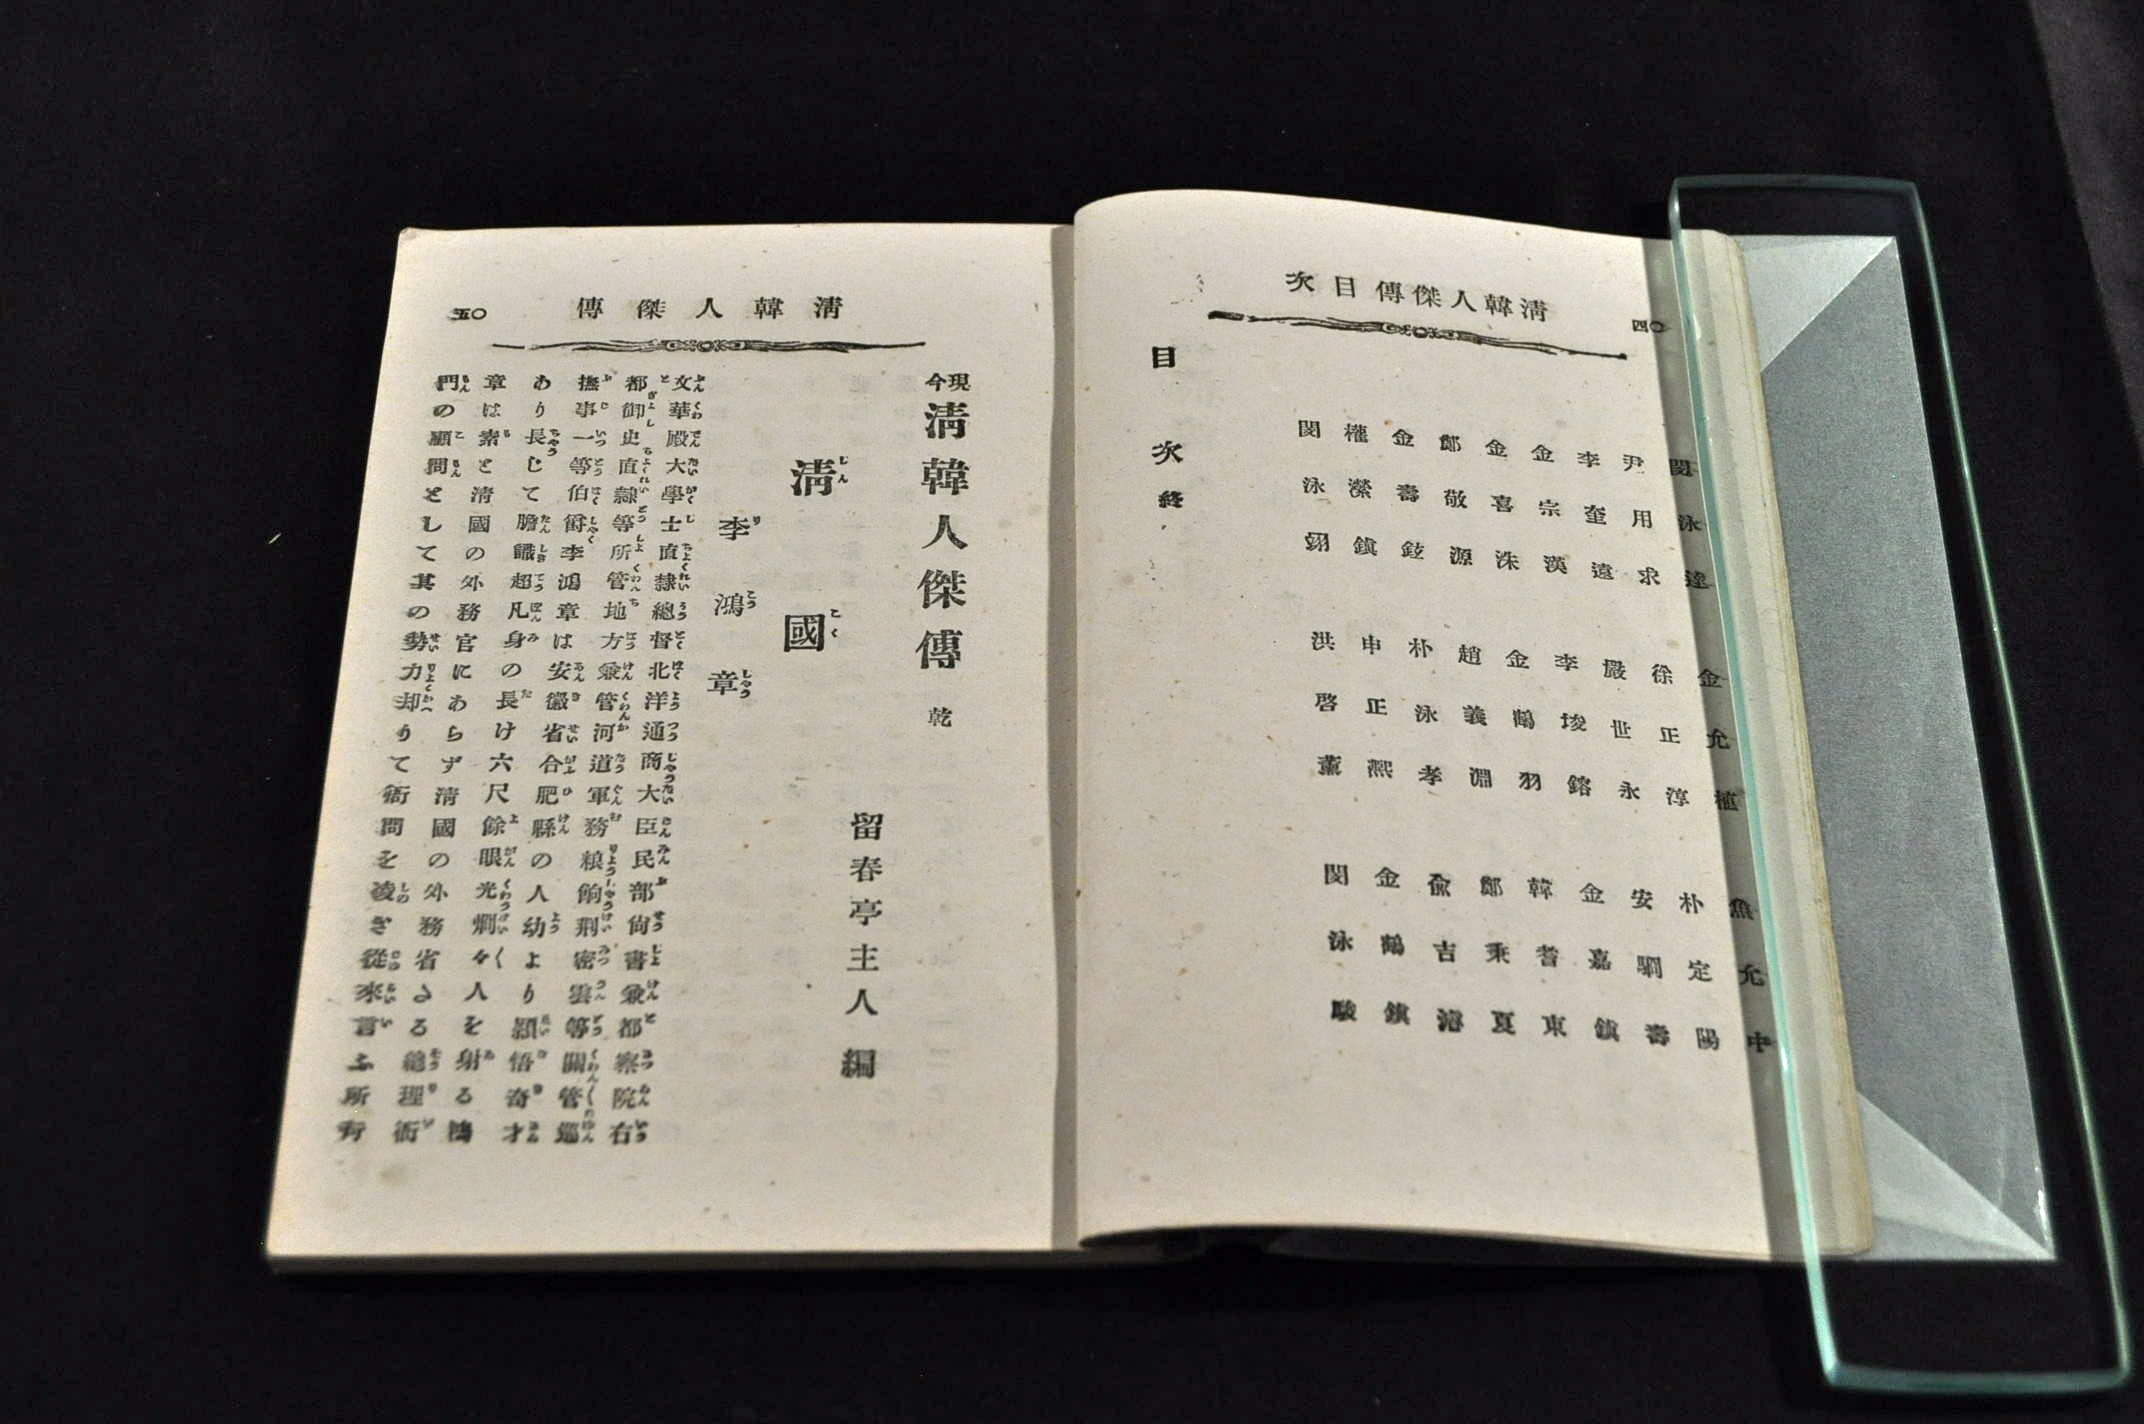 清韓人傑傳目次
〇四
閔泳達 金允植 魚允中
尹用求 徐正淳 朴定陽
李奎遠 嚴世永 安駉壽
金宗漢 李埈鎔 金嘉鎮
金喜洙 金鶴羽 韓耆東
鄭敬源 趙義淵 鄭秉夏
金壽鉉 朴泳孝 兪吉濬
權瀅鎮 申正熙 金鶴鎮
閔泳翊 洪啓薫 閔泳駿
目次終
清韓人傑傳
〇五
現今清韓人傑傳 乾
留春亭主人編
清國
李鴻章
文華殿大學士直隷總督北洋通商大臣民部尙書兼都察院右
都御史直隷等所管地方兼管河道軍務粮餉刑密雲等關管巡
撫事一等伯爵李鴻章は安徽省合肥縣の人幼より頴悟奇才
あり長じて膽識超凡身の長け六尺餘眼光烱々人を射る鴻
章は素と清國の外務官にあらず清國の外務省なる總理衙
門の顧問として其の勢力却りて衙問を凌ぎ從來言ふ所行